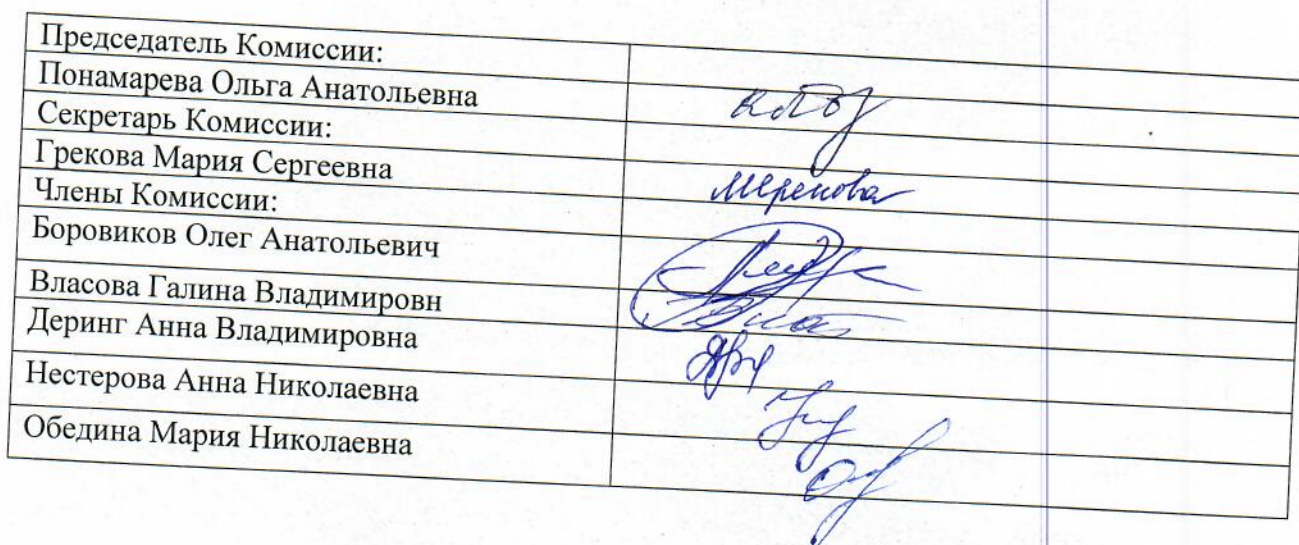 Председатель Комиссии:
Понамарева Ольга Анатольевна
Секретарь Комиссии:
Грекова Мария Сергеевна
Члены Комиссии:
Боровиков Олег Анатольевич
Власова Галина Владимировн
Деринг Анна Владимировна
Нестерова Анна Николаевна
Обедина Мария Николаевна